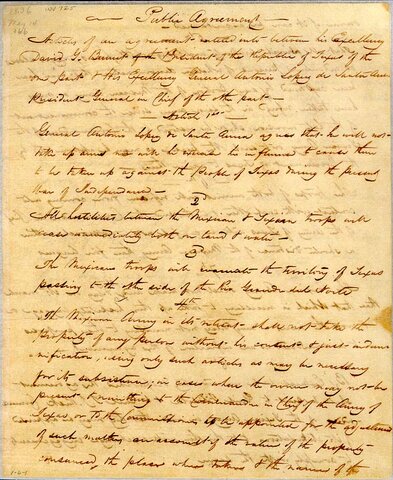 Public Agreement
Articles of an agreement entered into between his Excellency
David G. Burnet of the President of the Republic of Texas of the
one part & His Excellency General Antonio Lopez de Santa Anna
President General in Chief of the other part —
Article 1st —
General Antonio Lopez de Santa Anna agrees that he will not
take up arms nor will he exercise his influence to cause them
to be taken up against the People of Texas during the present
War of Independence —
2
All hostilities between the Mexican & Texian troops will
cease immediately both on land & water —
3
The Mexican troops will evacuate the territory of Texas
passing to the other side of the Rio Grande del Norte
4th
The Mexican Army in its retreat shall not take the
property of any person without his consent & just indem-
nification, using only such articles as may be necessary
for its subsistence, in cases where the owner may not be
present & remitting to the Commander in Chief of the Army of
Texas or to the Commissioners to be appointed for the adjustment
of such matters an account of the value of the property
consumed, the place where taken & the name of the